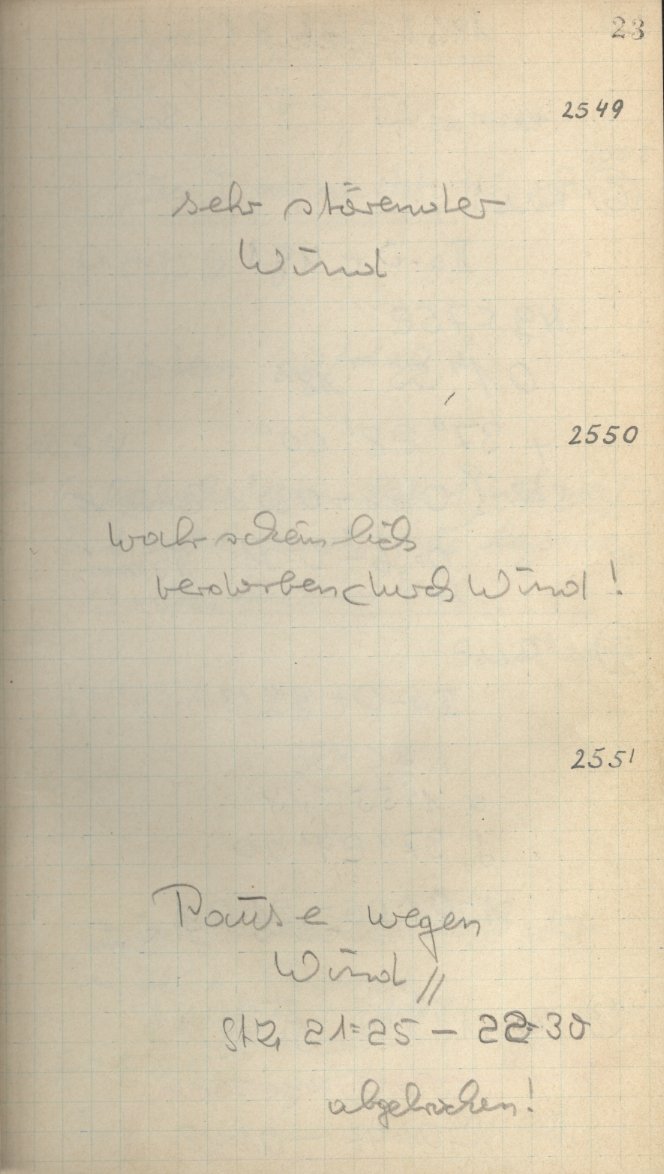 23
2549
sehr störender
Wind
2550
wahrscheinlich
verdorben durch Wind!
2551
Pause wegen
Wind //
Stz. 21=25 – 22=30
abgebrochen!